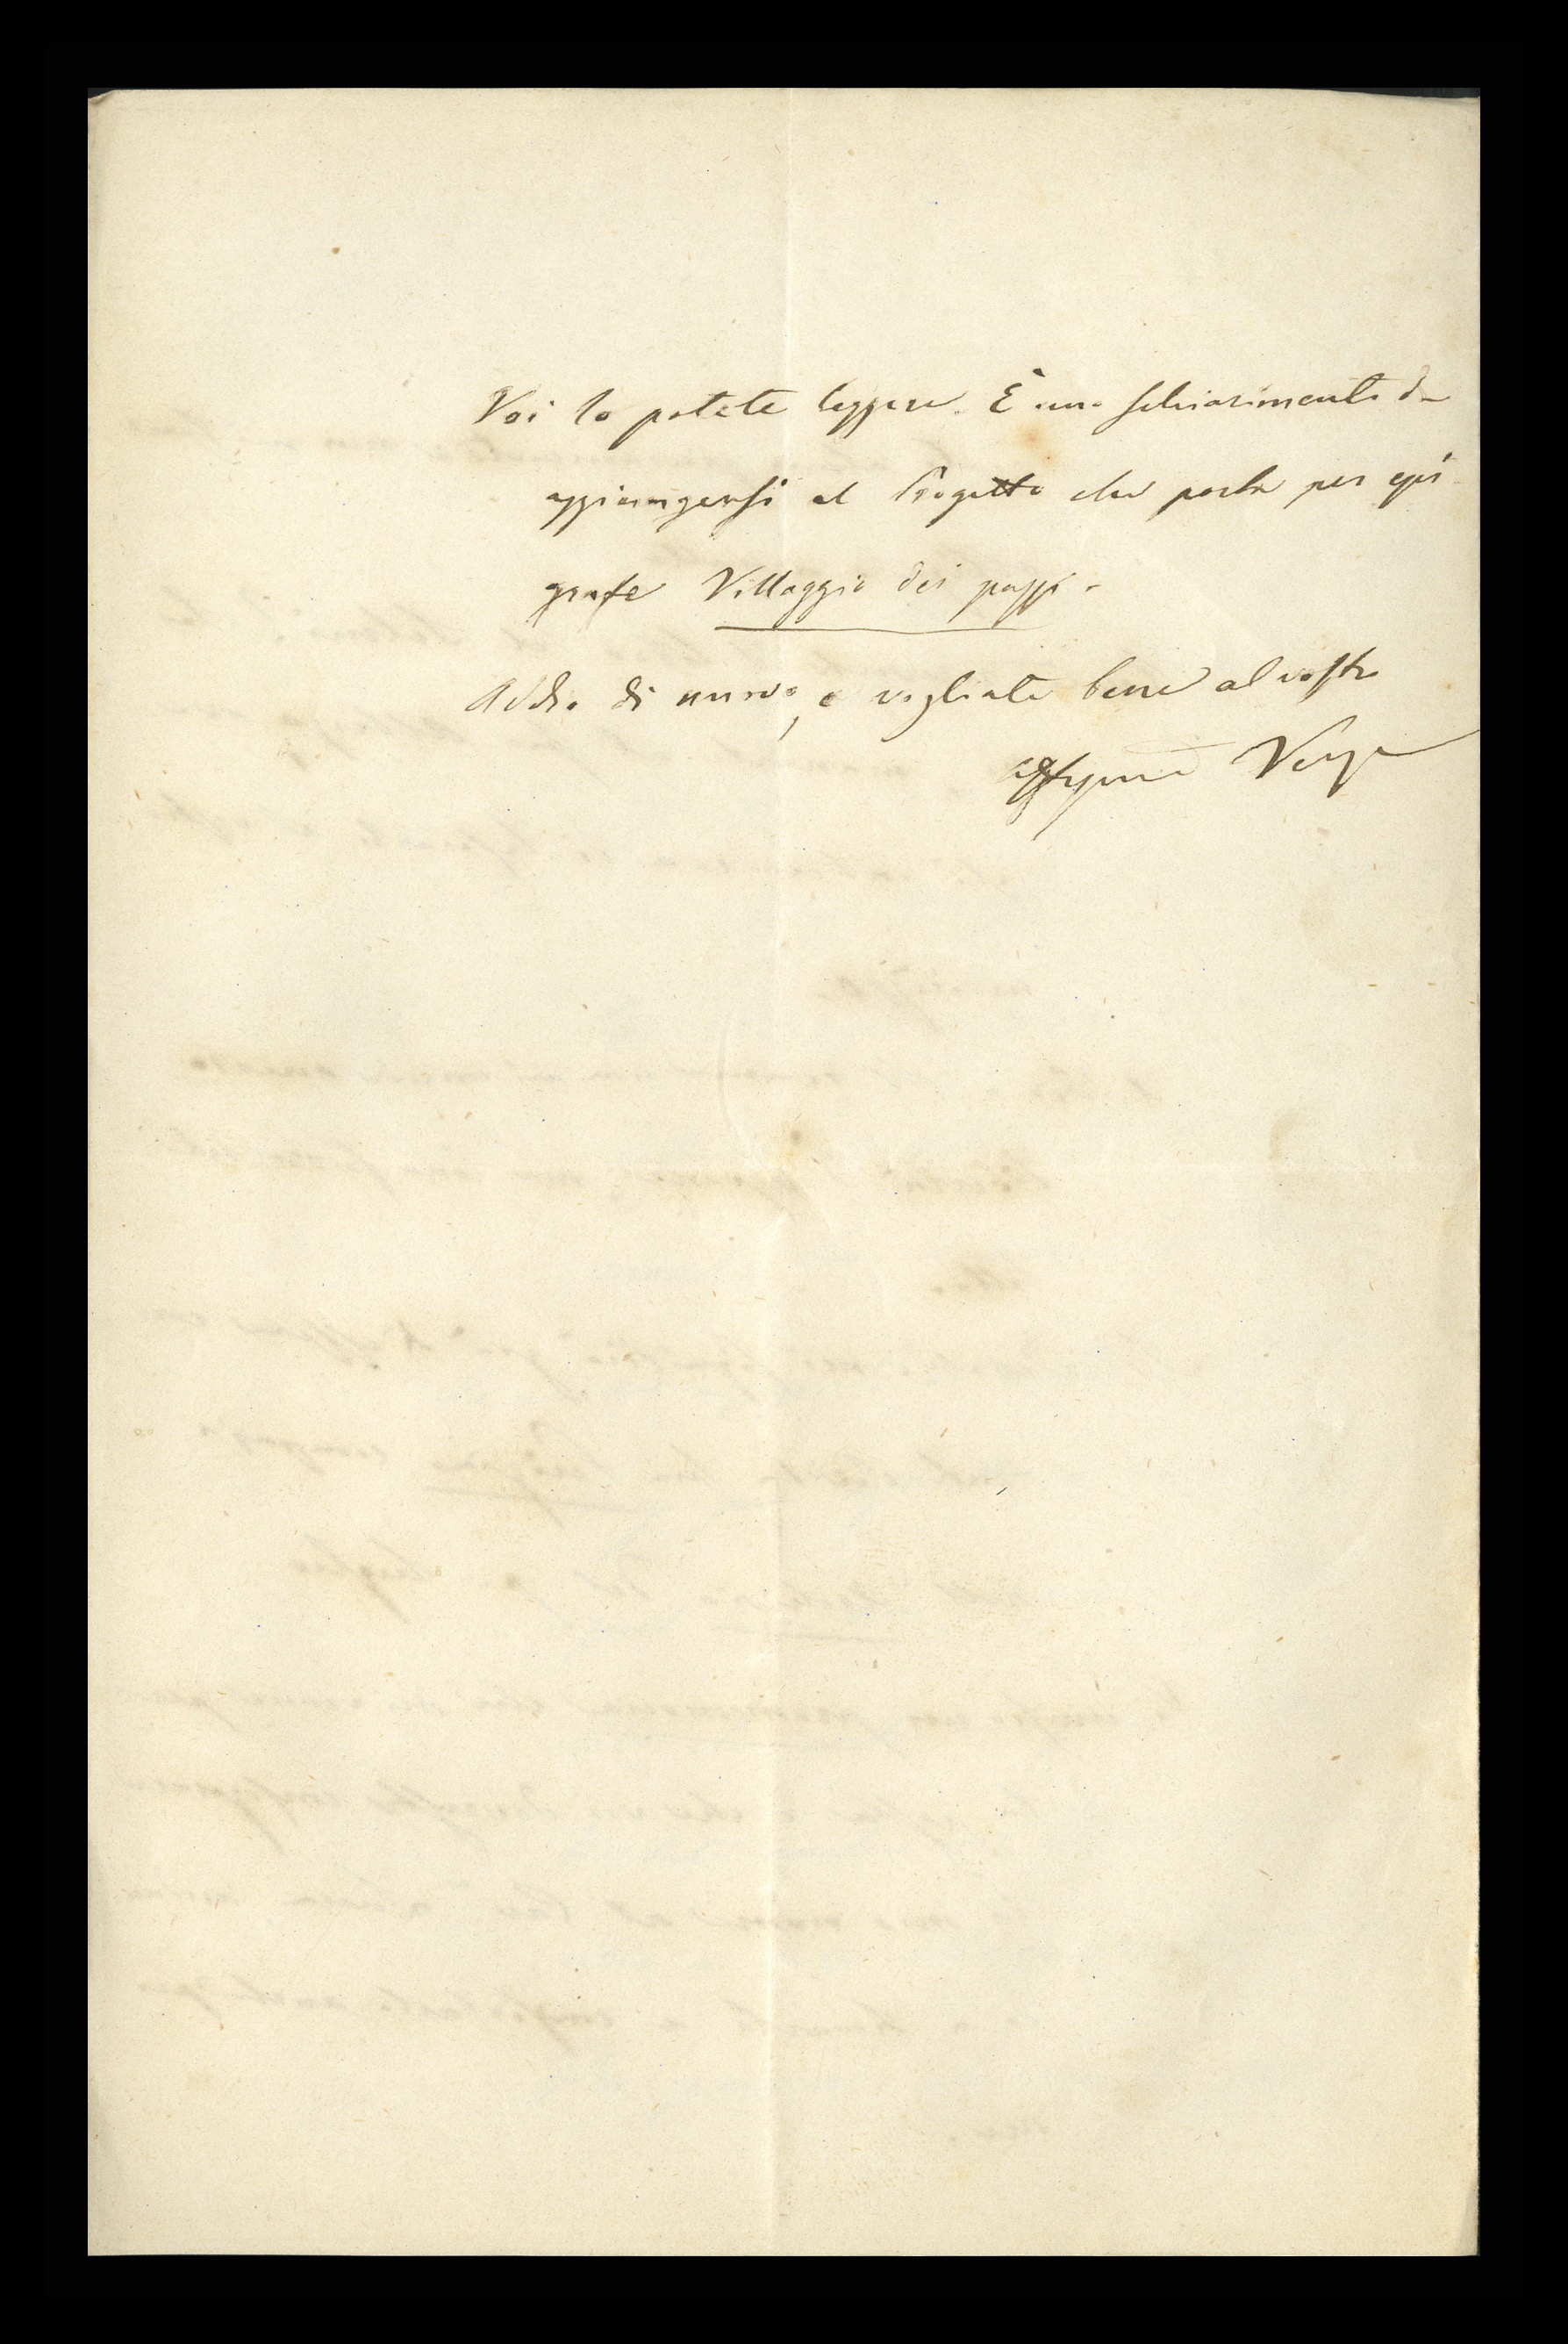 Voi lo potete leggere. È uno schiarimento da
aggiungersi al Progetto che porta per epi
grafe Villaggio dei pazzi.
Addio di nuovo, e vogliate bene al vostro
Verga